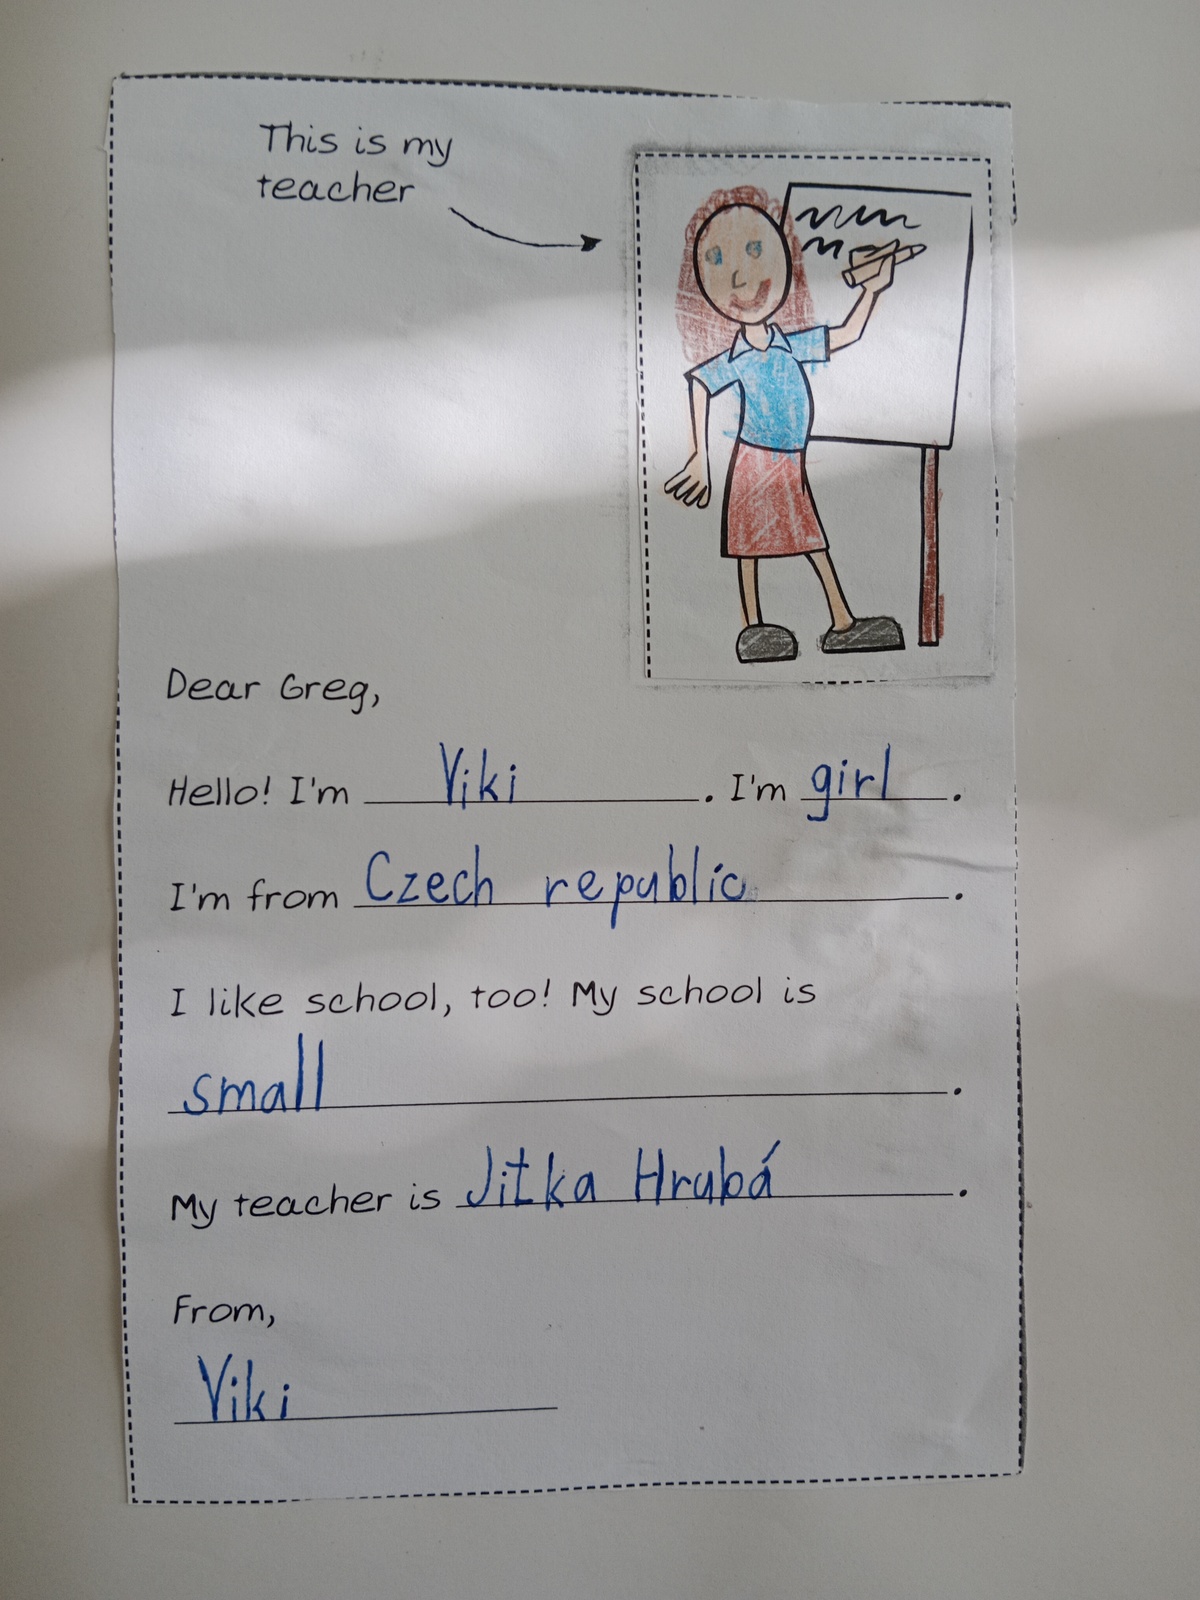 This is my
teacher
Dear Greg,
Hello! I'm Viki. I'm girl.
I'm from Czech republic.
I like school, too! My school is
small.
My teacher is Jitka Hrubá.
From,
Viki